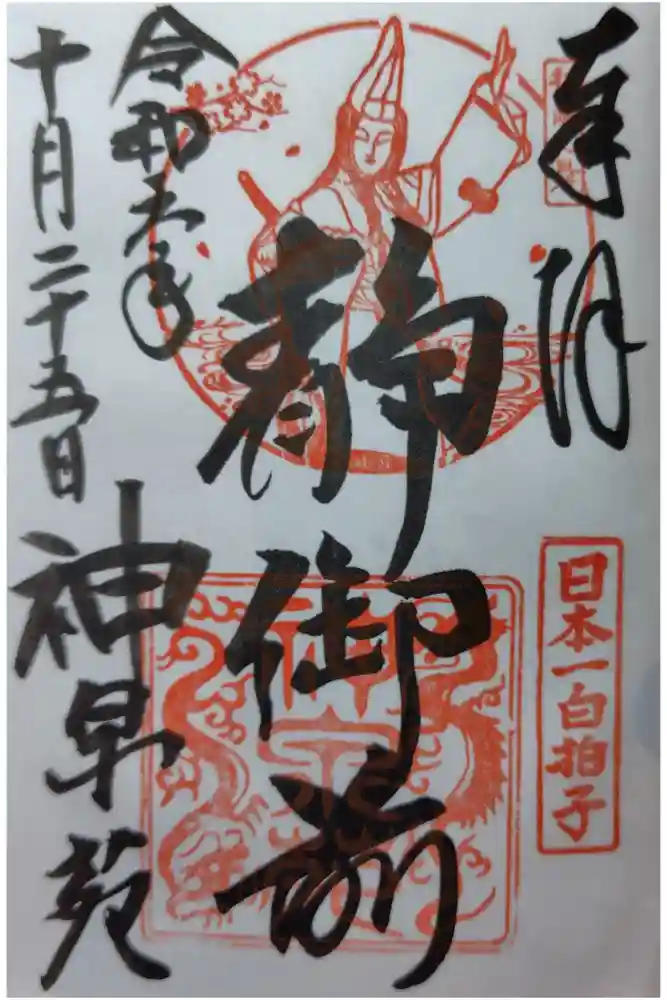 奉拝
静御前
日本一白拍子
令和六年
十月二十五日
神泉苑